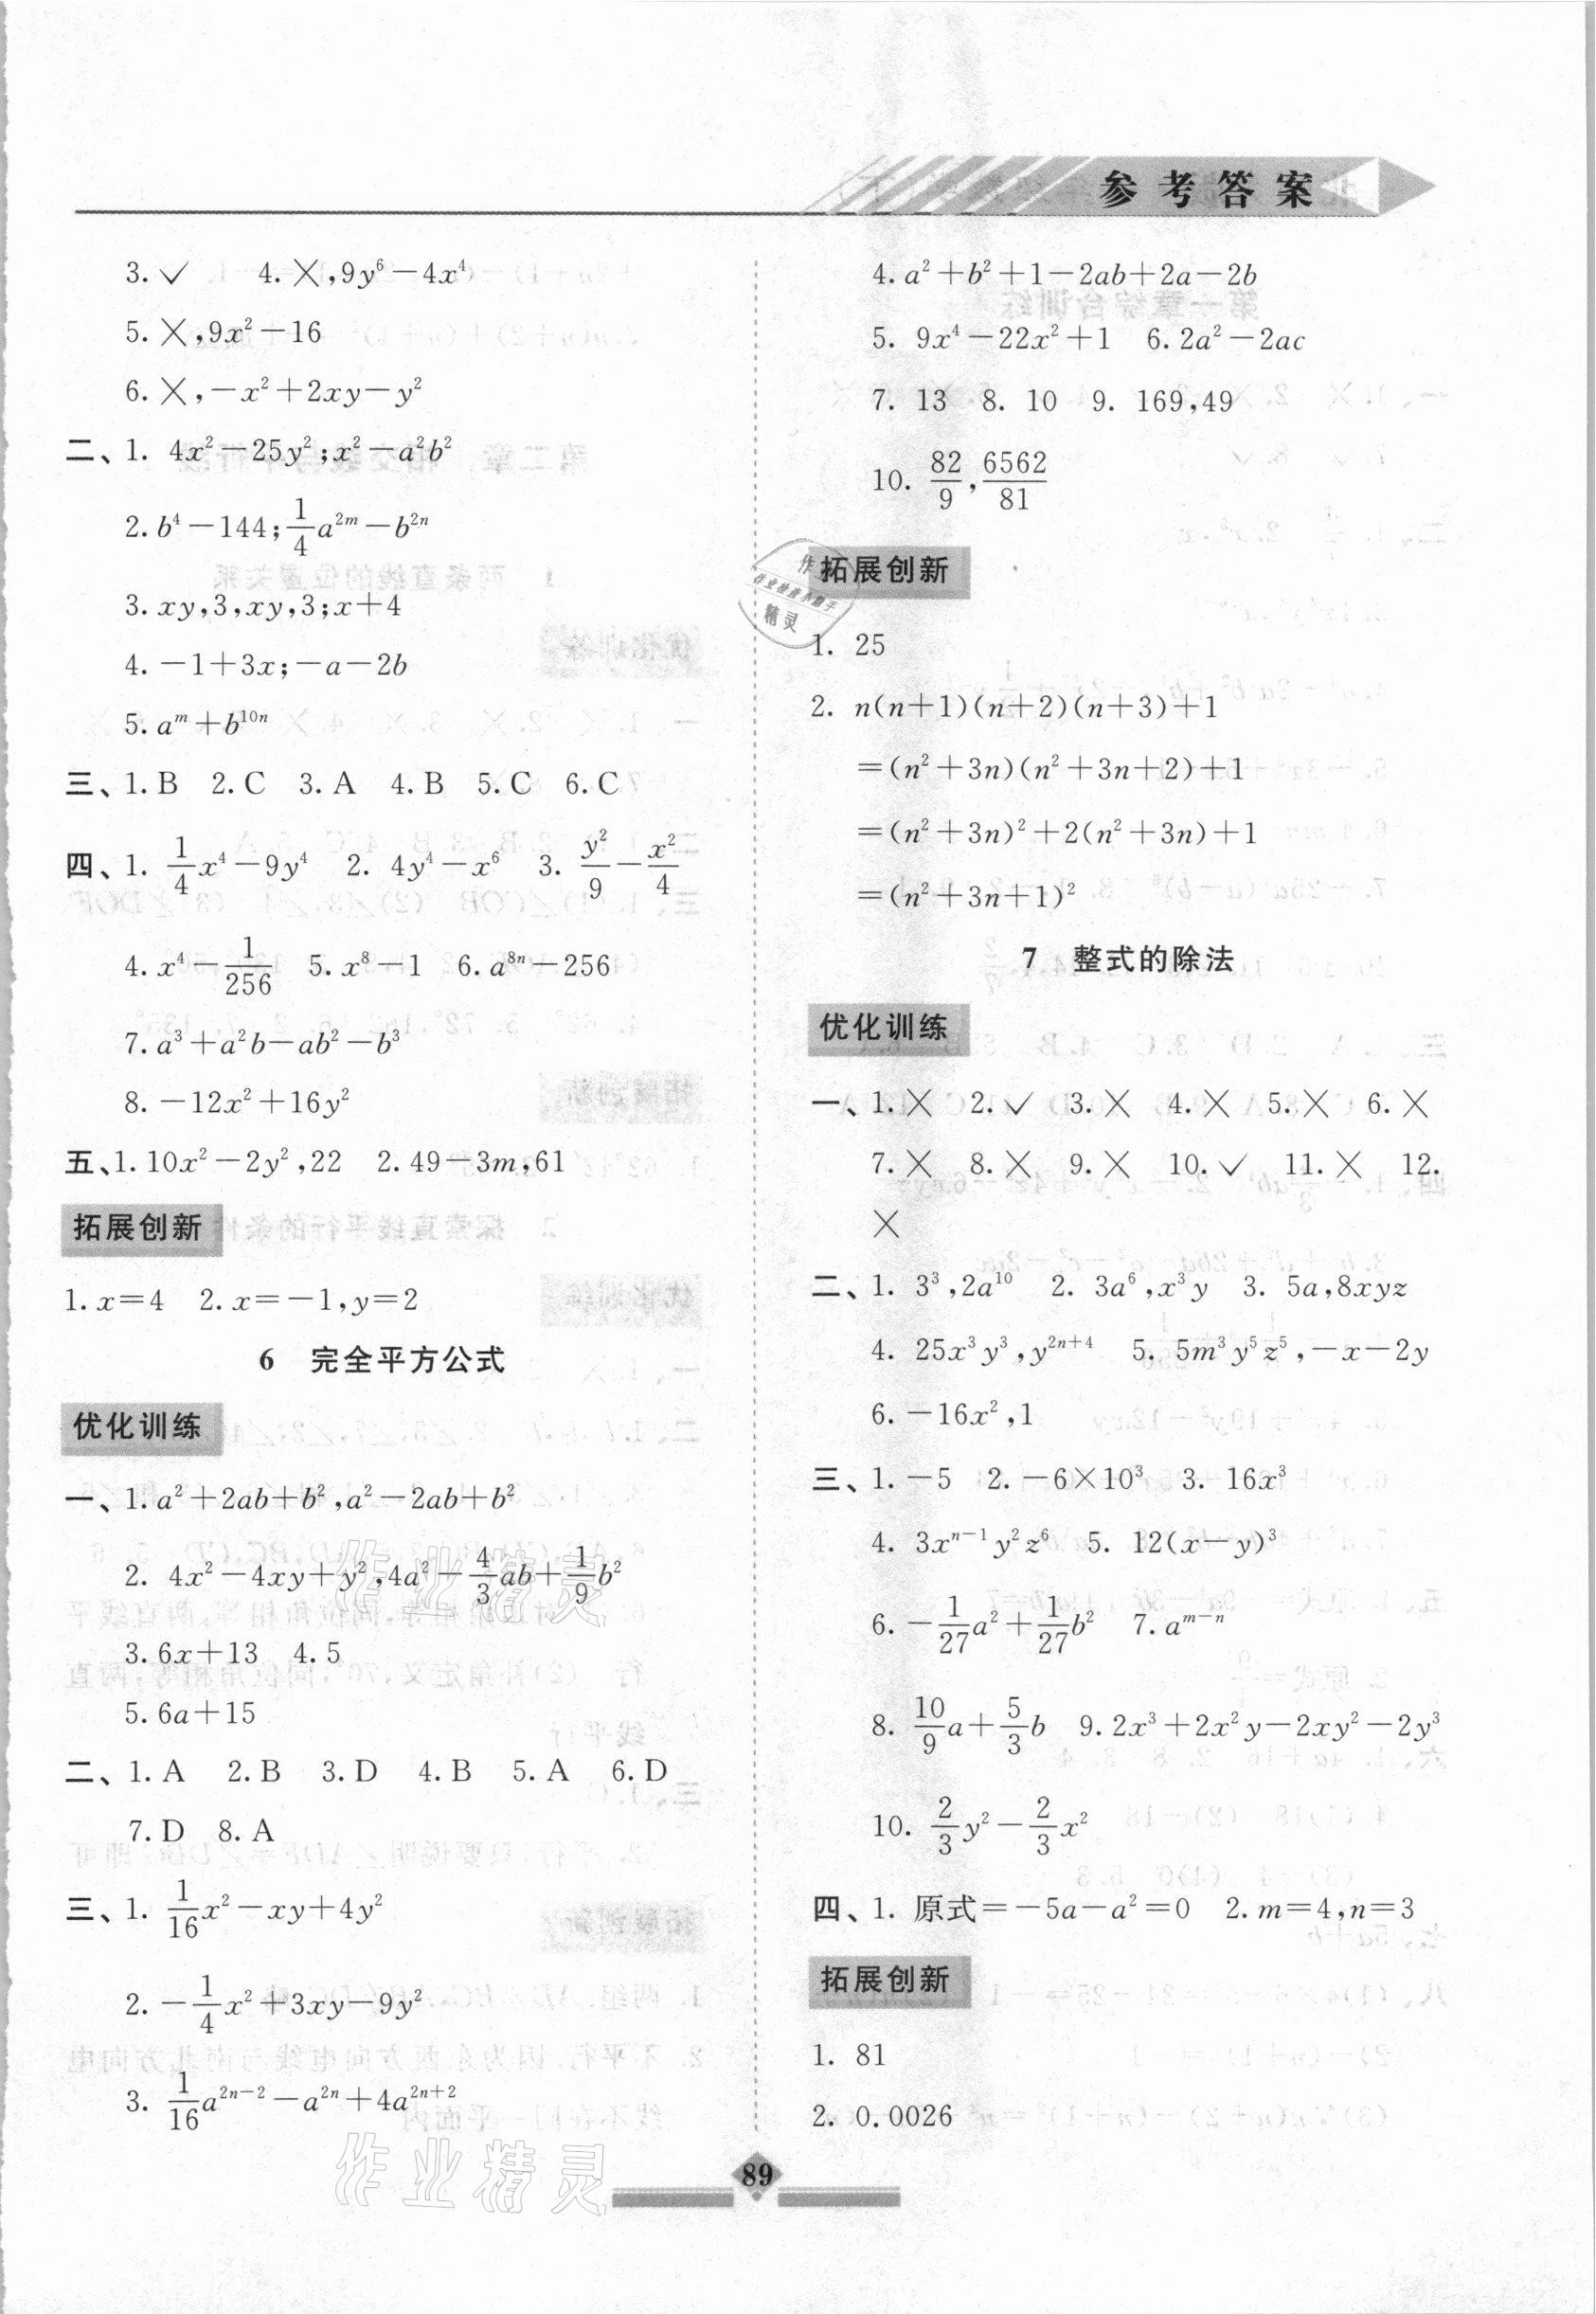 参考答案
3. ✓ 4. ╳,9y⁶－4x⁴
5. ╳,9x²－16
6. ╳,－x²＋2xy－y²
二、1. 4x²－25y²;x²－a²b²
2. b⁴－144;1/4a²ᵐ－b²ⁿ
3. xy,3,xy,3;x＋4
4. －1＋3x;－a－2b
5. aᵐ＋b¹⁰ⁿ
三、1. B 2. C 3. A 4. B 5. C 6. C
四、1. 1/4x⁴－9y⁴ 2. 4y⁴－x⁶ 3. y²/9－x²/4
4. x⁴－1/256 5. x⁸－1 6. a⁸ⁿ－256
7. a³＋a²b－ab²－b³
8. －12x²＋16y²
五、1. 10x²－2y²,22 2. 49－3m,61
拓展创新
1. x＝4 2. x＝－1,y＝2
6 完全平方公式
优化训练
一、1. a²＋2ab＋b²,a²－2ab＋b²
2. 4x²－4xy＋y²,4a²－4/3ab＋1/9b²
3. 6x＋13 4. 5
5. 6a＋15
二、1. A 2. B 3. D 4. B 5. A 6. D
7. D 8. A
三、1. 1/16x²－xy＋4y²
2. －1/4x²＋3xy－9y²
3. 1/16a²ⁿ⁻²－a²ⁿ＋4a²ⁿ⁺²
4. a²＋b²＋1－2ab＋2a－2b
5. 9x⁴－22x²＋1 6. 2a²－2ac
7. 13 8. 10 9. 169,49
10. 82/9,6562/81
拓展创新
1. 25
2. n(n＋1)(n＋2)(n＋3)＋1
＝(n²＋3n)(n²＋3n＋2)＋1
＝(n²＋3n)²＋2(n²＋3n)＋1
＝(n²＋3n＋1)²
7 整式的除法
优化训练
一、1. ╳ 2. ✓ 3. ╳ 4. ╳ 5. ╳ 6. ╳
7. ╳ 8. ╳ 9. ╳ 10. ✓ 11. ╳ 12.
╳
二、1. 3³,2a¹⁰ 2. 3a⁶,x³y 3. 5a,8xyz
4. 25x³y³,y²ⁿ⁺⁴ 5. 5m³y⁵z⁵,－x－2y
6. －16x²,1
三、1. －5 2. －6×10³ 3. 16x³
4. 3xⁿ⁻¹y²z⁶ 5. 12(x－y)³
6. －1/27a²＋1/27b² 7. aᵐ⁻ⁿ
8. 10/9a＋5/3b 9. 2x³＋2x²y－2xy²－2y³
10. 2/3y²－2/3x²
四、1. 原式＝－5a－a²＝0 2. m＝4,n＝3
拓展创新
1. 81
2. 0.0026
作业精灵
作业精灵
89